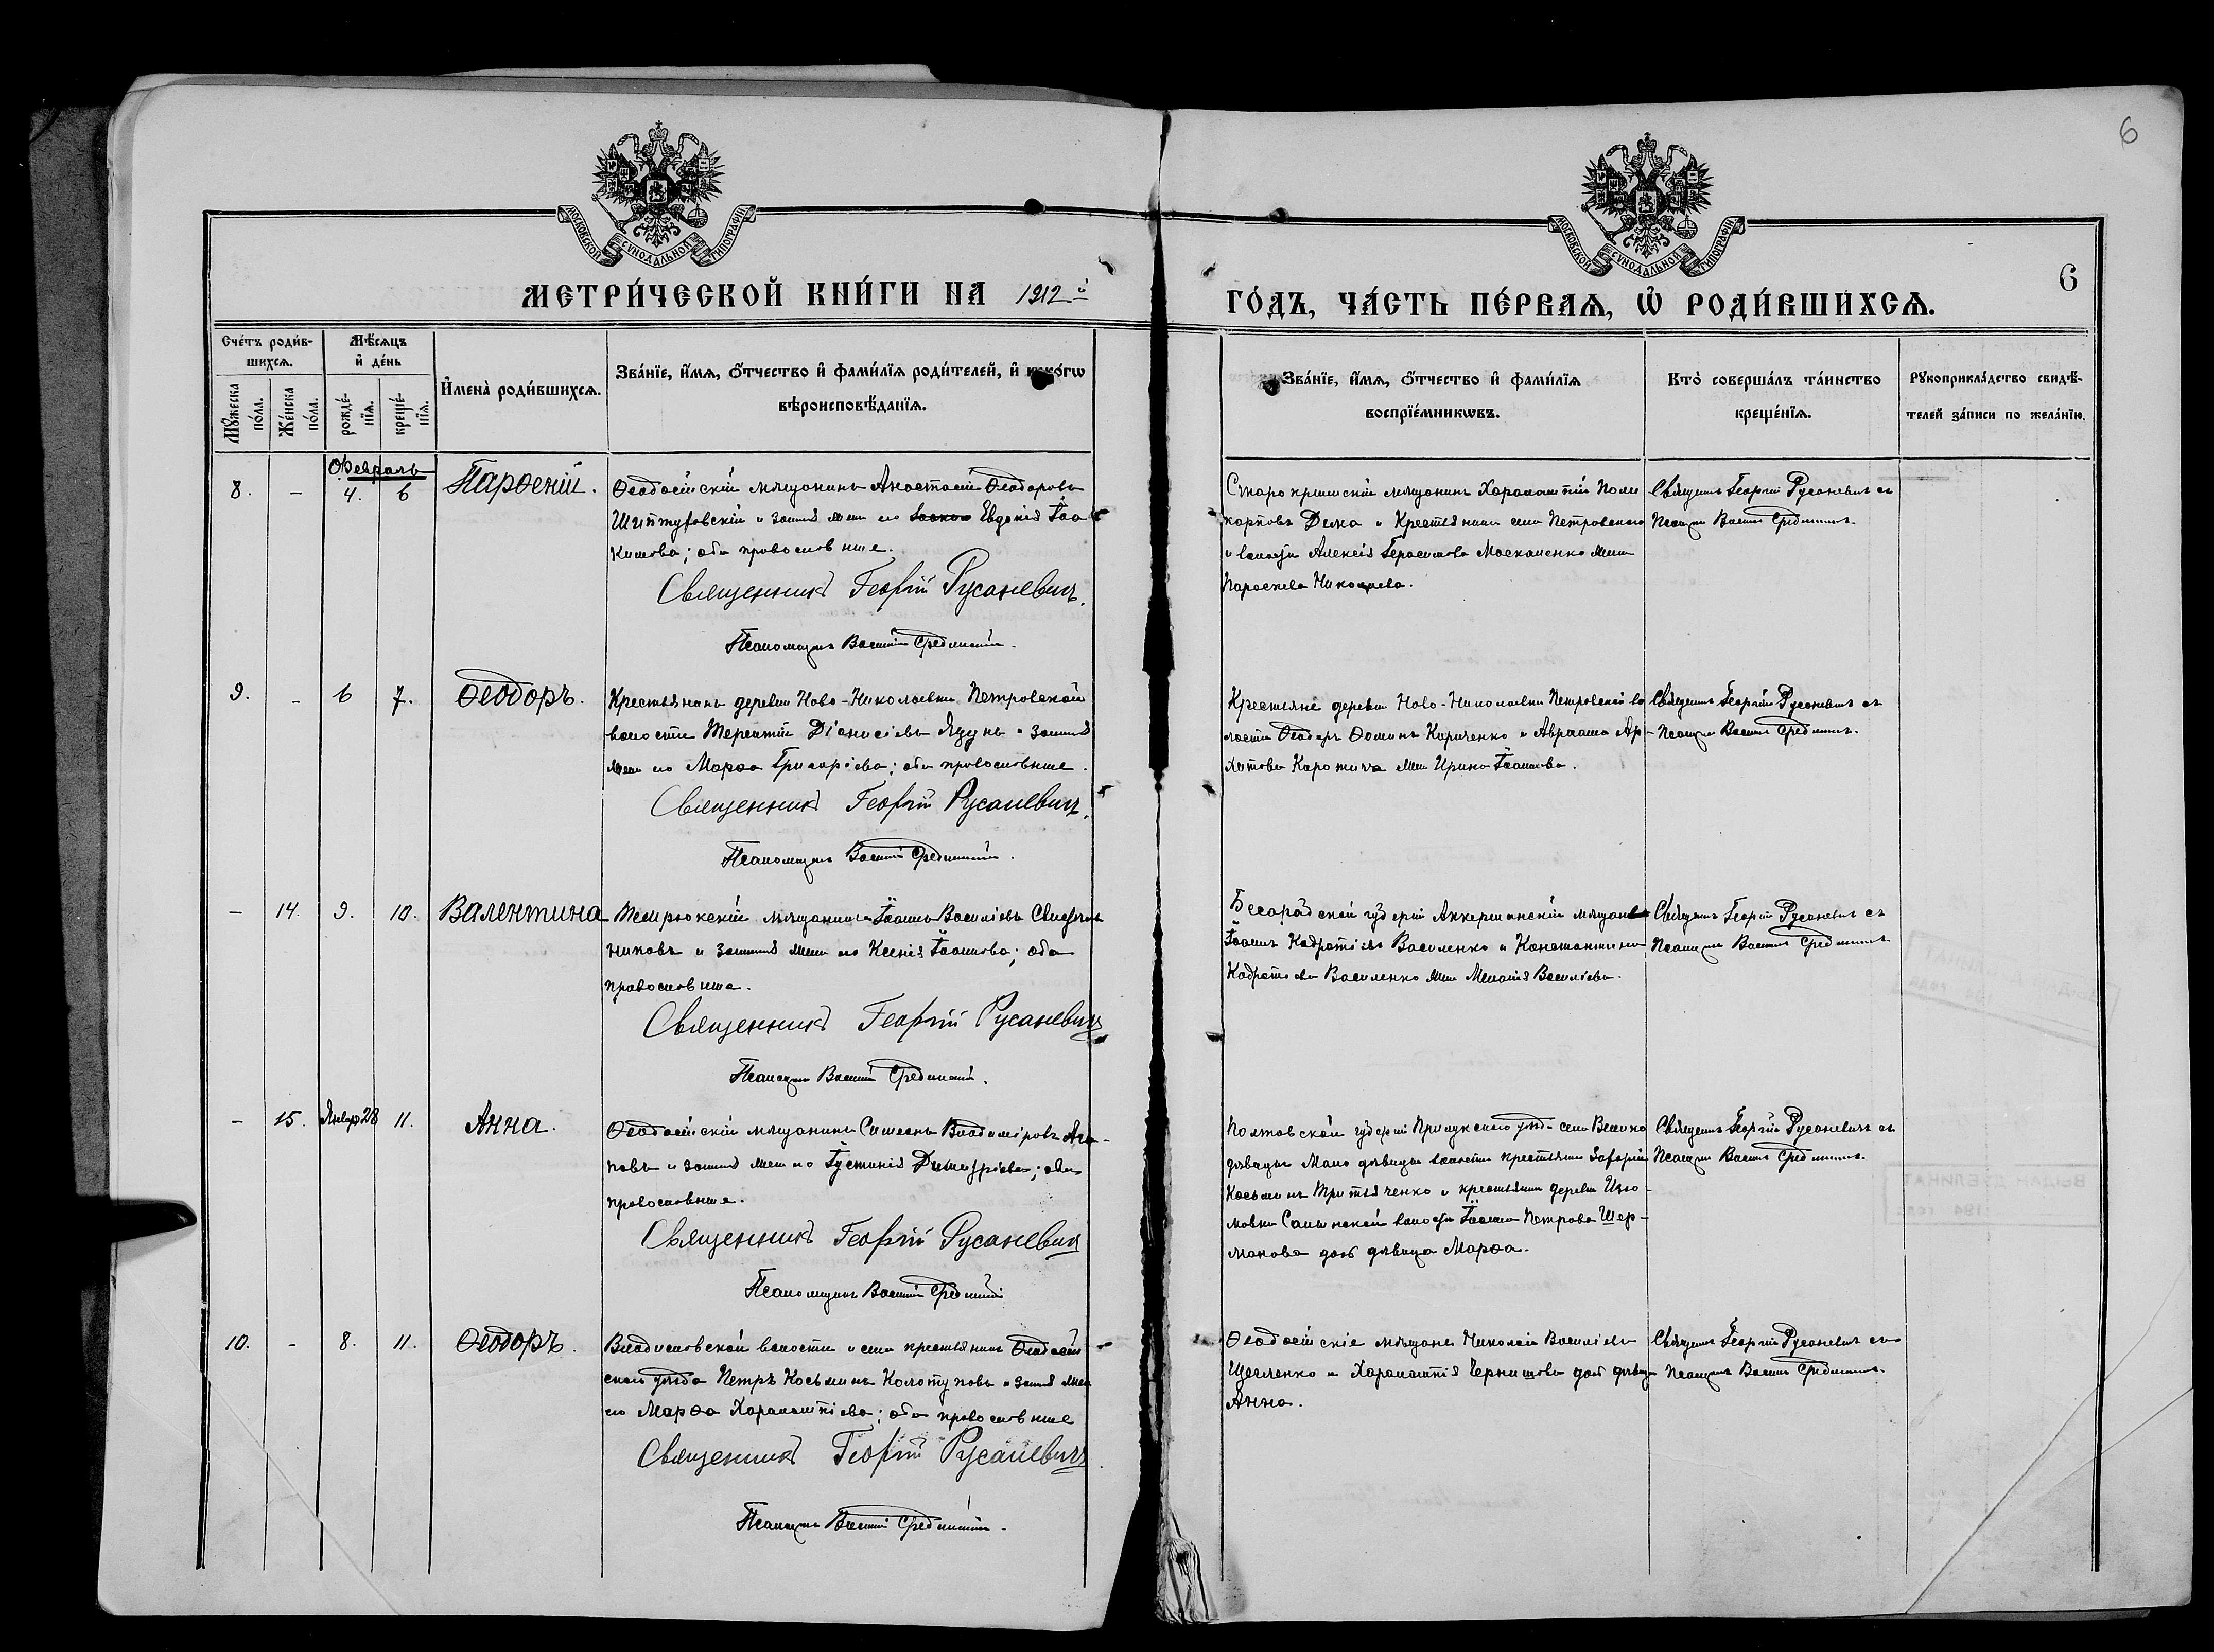 6
МОСКОВСКОЙ СѴНОДАЛЬНОЙ ТИПОГРАФІИ
МОСКОВСКОЙ СѴНОДАЛЬНОЙ ТИПОГРАФІИ
6
МЕТРИ́ЧЕСКОЙ КНИ́ГИ НА 1912й
ГО́ДЪ, ЧА́СТЬ ПЕ́РВАѦ, Ѽ РОДИ́ВШИХСѦ.
Сче́тъ роди́в-
шихсѧ.
Мꙋ́жеска по́ла.
Же́нска по́ла.
Мѣ́сѧцъ
и҆ де́нь
рожде́-
нїѧ.
креще́-
нїѧ.
И҆мена̀ роди́вшихсѧ.
Зва́нїе, и҆́мѧ, ѻ҆́тчество и҆ фами́лїѧ роди́телей, и҆ како́гѡ
вѣроисповѣ́данїѧ.
Зва́нїе, и҆́мѧ, ѻ҆́тчество и҆ фами́лїѧ
воспрїе́мникѡвъ.
Кто̀ соверша́лъ та́инство
креще́нїѧ.
Рꙋкоприкла́дство свидѣ́-
телей за́писи по жела́нїю.
Февраль
8. - 4. 6 Парѳеній.
Ѳеодосійскій мѣщанинъ Анастасій Ѳеодоровъ
и законная жена его Евдокія Іоа
кимова; оба православные.
Священникъ Георгій Русаневичъ.
Псаломщикъ Василій Срединскій.
Старокрымскій мѣщанинъ Харлампій Поли
карповъ Дема и крестьянина села Петровскаго
и волости Алексія Герасимова Москаленко жена
Параскева Николаева.
Священ. Георгій Русаневичъ съ
Псаломщ. Васил. Срединскимъ.
9. - 6 7. Ѳеодоръ.
Крестьянинъ деревни Ново-Николаевки Петровской
волости Терентій Діонисіевъ Ядунъ и законная
жена его Марѳа Григоріева; оба православные.
Священникъ Георгій Русаневичъ.
Псаломщикъ Василій Срединскій.
Крестьяне деревни Ново-Николаевки Петровской во
лости Ѳеодоръ Ѳоминъ Кириченко и Авраама Ар-
хипова Каротича жена Ирина Іоаннова.
Священ. Георгій Русаневичъ съ
Псаломщ. Васил. Срединскимъ.
- 14. 9. 10. Валентина
Темрюкскій мѣщанинъ Іоаннъ Василіевъ
никовъ и законная жена его Ксенія Іоаннова; оба
православные.
Священникъ Георгій Русаневичъ
Псаломщикъ Василій Срединскій.
Бесарабской губерніи Аккерманскій мѣщане
Іоаннъ Кодратіевъ Василенко и Константина
Кодратіева Василенко жена Меланія Василіева.
Священ. Георгій Русаневичъ съ
Псаломщ. Васил. Срединскимъ
- 15. Январ 28 11. Анна.
Ѳеодосійскій мѣщанинъ Симеонъ Владиміровъ Ага-
повъ и законная жена его Іустинія Димитріева; оба
православные.
Священникъ Георгій Русаневичъ
Псаломщикъ Василій Срединскій
Полтавской губерніи Прилукскаго уѣзда села Велико
дѣвицы Мало дѣвицкой волости крестьянинъ
Косьминъ и крестьянина деревни Изю-
мовки Салынской волости Іоанна Петрова Шер-
манова дочь дѣвица Марѳа.
Священ. Георгій Русаневичъ съ
Псаломщ. Васил. Срединскимъ.
10. - 8. 11. Ѳеодоръ.
Владиславской волости и села крестьянинъ Ѳеодосій
скаго уѣзда Петръ Косьминъ Колотуповъ и законная жена
его Марѳа Харлампіева; оба православные
Священникъ Георгій Русаневичъ
Псаломщикъ Василій Срединскій.
Ѳеодосійскіе мѣщане Николай Василіевъ
и Харлампія Чернышова дочь дѣвица
Анна.
Священ. Георгій Русаневичъ съ
Псаломщ. Васил. Срединскимъ.